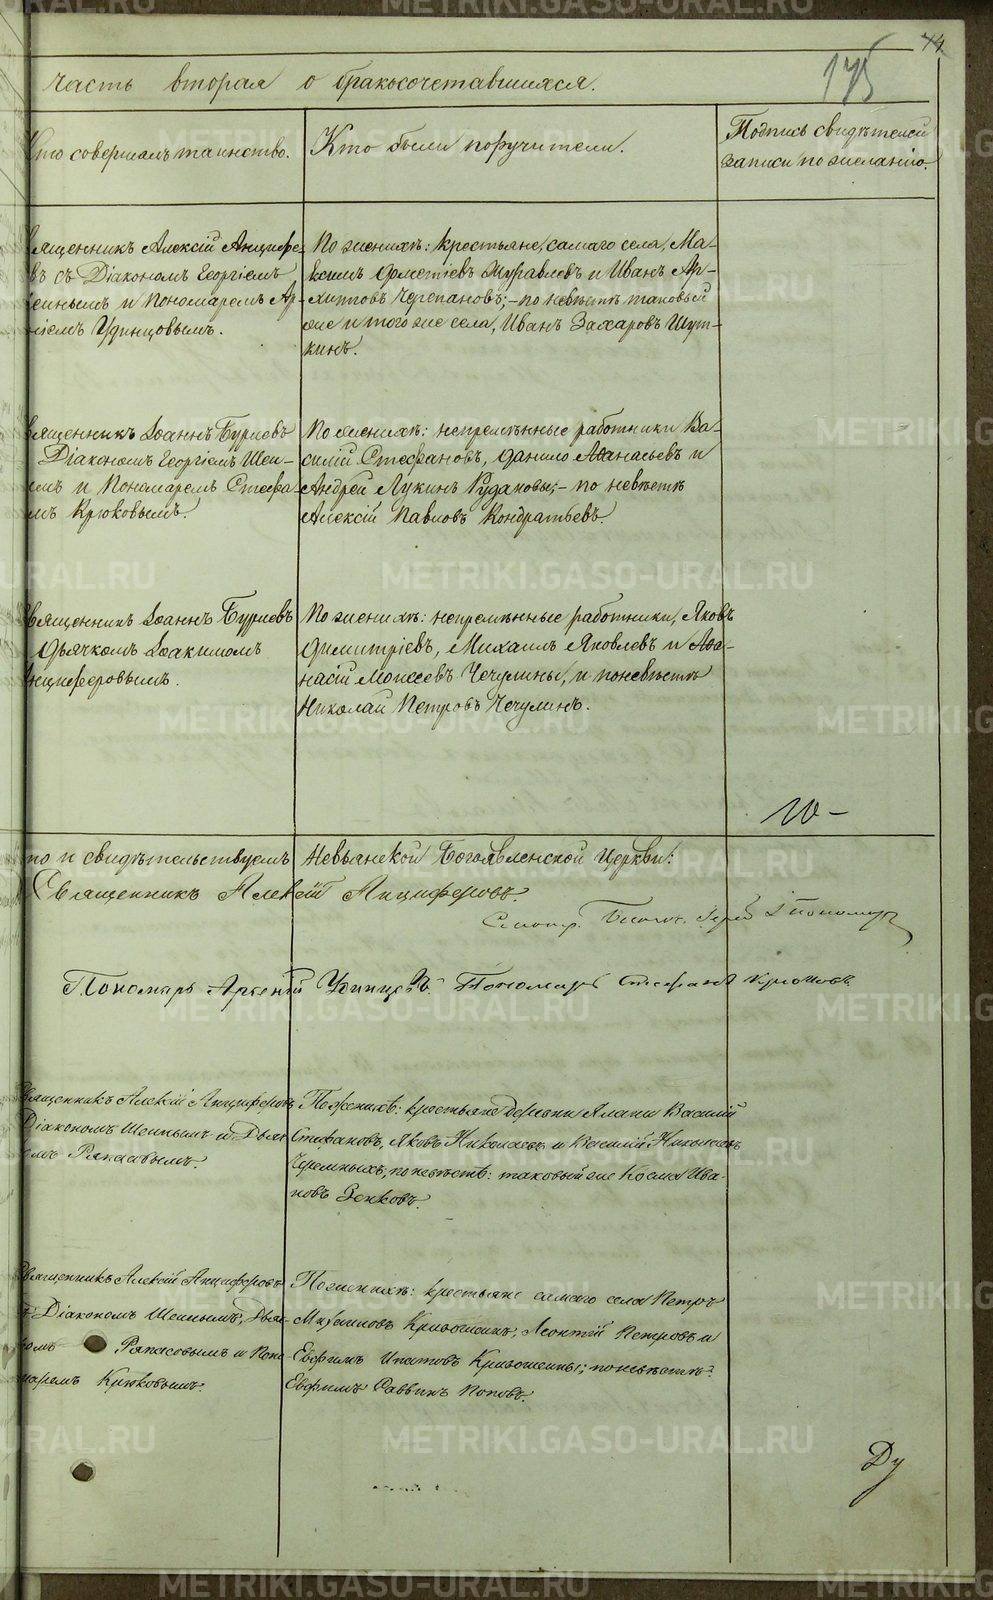 74
175
часть вторая о бракосочетавшихся.
Кто совершалъ таинство.
Кто были поручители.
Подпись свидѣтелей
записи по желанію.
Священникъ Алексій Анцифе-
въ съ Діакономъ Георгіемъ
Шеинымъ и Пономаремъ Ар-
Удинцовымъ.
По женихѣ: крестьяне, самаго села, Ма-
ксимъ Журавлевъ и Иванъ Ар-
хиповъ Черепановъ; - по невѣстѣ таковый
же и того же села, Иванъ Захаровъ Шут-
кинъ.
Священникъ Іоаннъ Бурневъ
Діакономъ Георгіемъ Шеи-
мъ и Пономаремъ Стефа-
мъ Крюковымъ.
По женихѣ: непремѣнные работники Ва-
силій Стефановъ, Данило Аѳанасьевъ и
Андрей Лукинъ Рудаковы; - по невѣстѣ
Алексій Павловъ Кондратьевъ.
Священникъ Іоаннъ Бурневъ
Дьячкомъ Іоакимомъ
Анциферовымъ.
По женихѣ: непремѣнные работники, Яковъ
Димитріевъ, Михаилъ Яковлевъ и Аѳа-
насій Моисеевъ Чечулины, и по невѣстѣ
Николай Петровъ Чечулинъ.
то и свидѣтельствуемъ Невьянской Богоявленской Церкви:
Священникъ Алексій Анциферовъ.
Пономарь Арсеній Удинцовъ. Пономарь Стефанъ Крюковъ.
Священникъ Алексій Анциферовъ
Діакономъ Шеинымъ и Дьяч-
омъ Рапасовымъ.
По женихѣ: крестьяне деревни Алапи Василій
Стефановъ, Яковъ Николаевъ и Василій Николаевъ
Черемныхъ, по невѣстѣ: таковый же Косма Ива-
новъ Зенковъ.
Священникъ Алексій Анциферовъ
Діакономъ Шеинымъ, Дьяч-
комъ Рапасовымъ и Поно-
маремъ Крюковымъ.
По женихѣ: крестьяне самаго села Петръ
Михаиловъ Кривошеинъ, Леонтій Петровъ и
Евфимъ Ипатовъ Кривошеины; по невѣстѣ:
Евфимъ Саввинъ Поповъ.
METRIKI.GASO-URAL.RU